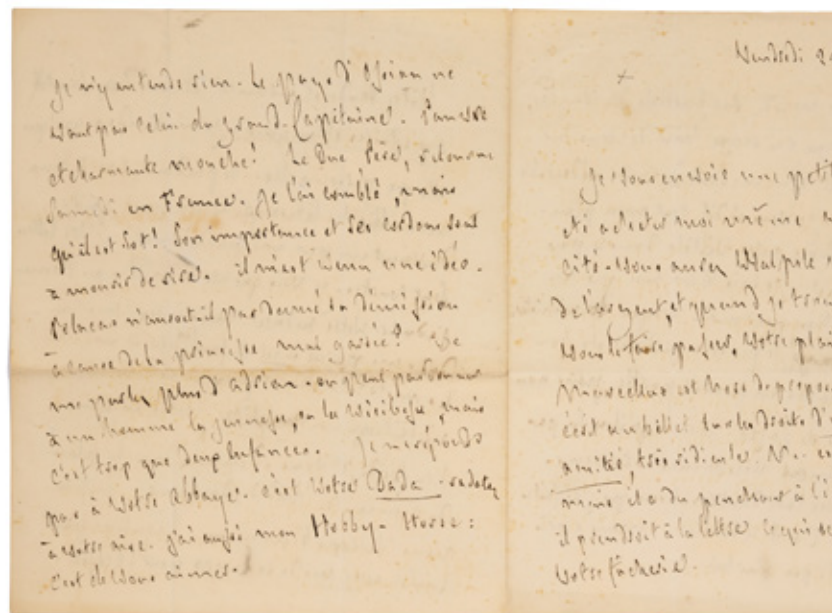 Je n'y entends rien. Le pays d'Ossian ne
vaut pas celui du grand Capitaine. Pauvre
et charmante mouche! Le Duc Père, retourne
Samedi en France. Je l'ai comblé, mais
qu'il est sot! Son importance et ses cordons sont
à mourir de rire. il m'est venu une idée.
n'auroit-il pas donné sa démission
à cause de la princesse mal gardée? Ne
me parlez plus d'adrian. on peut pardonner
à un homme la jeunesse, ou la vieillesse, mais
c'est trop que deux enfances. Je ne réponds
pas à votre abbaye. c'est votre Dada. radotez
à votre aise. j'ai aussi mon Hobby-Horse:
c'est de vous aimer.
Vendredi 2
Je vous envoie une petit
été acheter moi même
cité. vous aurez Walpole
de l'argent, et quand je
vous le faire passer. Votre
est hors de propos
c'est un billet sur les droits d'
amitié, très ridicule. M.
mais il a du penchant à l'i
il prendroit à la lettre ce qui
votre fâcherie.